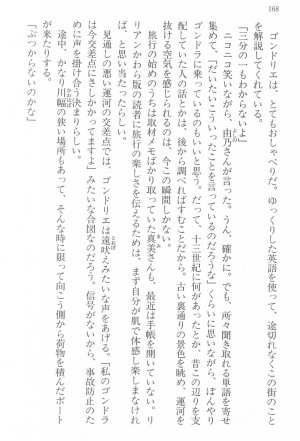 168
ゴンドリエは、とてもおしゃべりだ。ゆっくりした英語を使って、途切れなくこの街のこと
を解説してくれている。
「三分の一もわからないよ」
ニコニコ笑いながら、由乃さんが言った。うん、確かに。でも、所々聞き取れる単語を寄せ
集めて、「だいたいこういったことを言っているのだろうな」くらいに思いながら、ぼんやり
ゴンドラに乗っているのもいいと思う。だって、十三世紀に何があったとか、昔この辺りを支
配していた人の話とかは、後から調べればすむことだから。古い裏通りの景色を眺め、運河を
抜ける空気を感じられるのは、今この瞬間しかない。
旅行の始めのうちは取材メモばかり取っていた真美さんも、最近は手帳を開いていない。リ
リアンかわら版の読者に旅行の楽しさを伝えるためは、まず自分が肌で体感し楽しまなけれ
ば、と思い当たったらしい。
見通しの悪い運河の交差点では、ゴンドリエは遠吠えみたいな声をあげる。「私のゴンドラ
は今交差点にさしかかってますよ」みたいな合図なのだろう。信号がないから、事故防止のた
めに声を掛け合う決まりらしい。
途中、かなり川幅の狭い場所もあって、そんな時に限って向こう側から荷物を積んだボート
が来たりする。
「ぶつからないのかな」